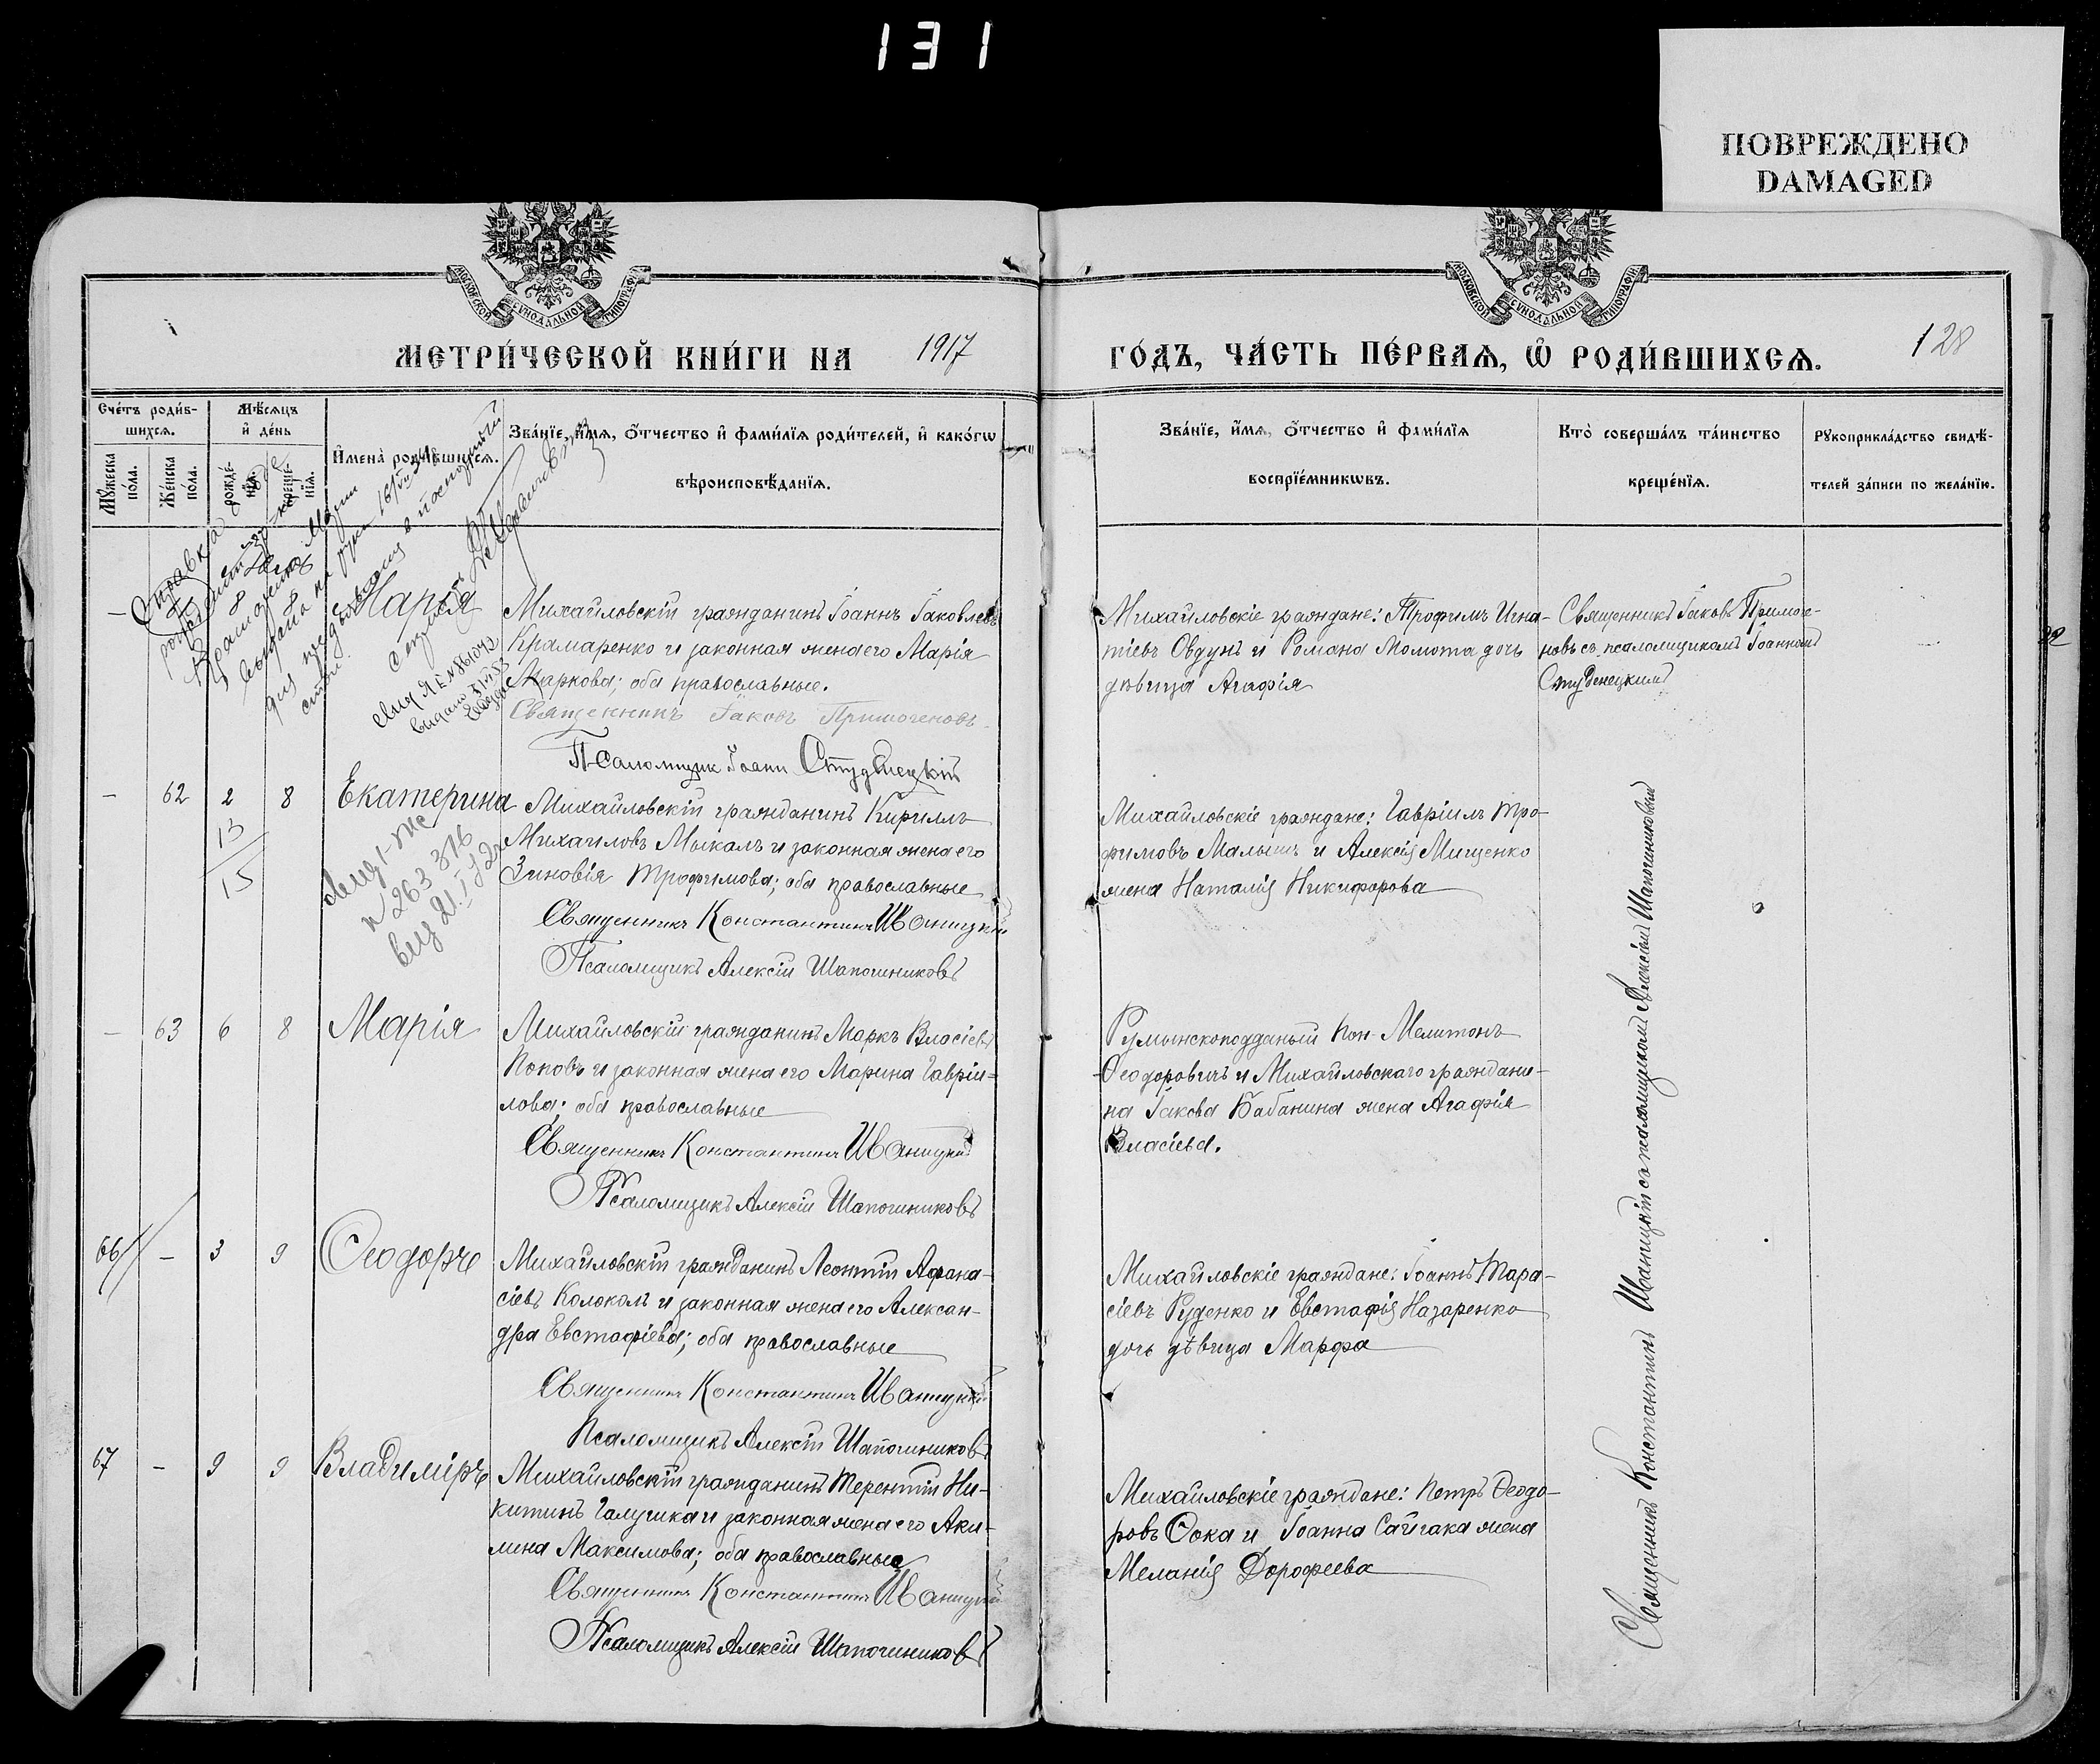 131
ПОВРЕЖДЕНО
DAMAGED
МОСКОВСКОЙ СѴНОДАЛЬНОЙ ТИПОГРАФІИ
МОСКОВСКОЙ СѴНОДАЛЬНОЙ ТИПОГРАФІИ
МЕТРИ́ЧЕСКОЙ КНИ́ГИ НА 1917 ГО́ДЪ, ЧА́СТЬ ПЕ́РВАѦ, Ѡ҆ РОДИ́ВШИХСѦ. 128
Сче́тъ роди́в-
шихсѧ.
Мꙋ́жеска по́ла.
Же́нска по́ла.
Мѣ́сѧцъ
и҆ де́нь
рожде́-
нїѧ.
креще́-
нїѧ.
И҆мена̀ роди́вшихсѧ.
Зва́нїе, и҆́мѧ, ѻ҆́тчество и҆ фами́лїѧ роди́телей, и҆ како́гѡ
вѣроисповѣ́данїѧ.
Зва́нїе, и҆́мѧ, ѻ҆́тчество и҆ фами́лїѧ
воспрїе́мникѡвъ.
Кто̀ соверша́лъ та́инство
креще́нїѧ.
Рꙋкоприкла́дство свидѣ́-
телей за́писи по жела́нїю.
Справка о
выдана на руки
– 8 8 Марія
Михайловскій гражданинъ Іоаннъ Іаковлевъ
Крамаренко и законная жена его Марія
Маркова; оба православные.
Священникъ Іаковъ Примогеновъ
Псаломщик Іоанн Студенецкій
Михайловскіе граждане: Трофимъ Игна-
тіевъ Овдунъ и Романа Момота дочь
дѣвица Агафія
Священникъ Іаковъ Примоге-
новъ съ псаломщикомъ Іоанномъ
Студенецкимъ
– 62 2 8 Екатерина
13
15
N 263376
Михайловскій гражданинъ Кириллъ
Михаиловъ Мыкалъ и законная жена его
Зиновія Трофимова; оба православные
Священникъ Константинъ Иваницкій
Псаломщикъ Алексій Шапошниковъ
Михайловскіе граждане: Гавріилъ Тро-
фимовъ Малышъ и Алексія Мищенко
жена Наталія Никифорова
– 63 6 8 Марія
Михайловскій гражданинъ Маркъ Власіевъ
Поповъ и законная жена его Марина Гавріи-
лова; оба православные
Священникъ Константинъ Иваницкій
Псаломщикъ Алексій Шапошниковъ
Румынскоподданый Кон Мелитонъ
Ѳеодоровичъ и Михайловскаго граждани-
на Іакова Бабанина жена Агафія
Власіева.
66 – 3 9 Ѳеодоръ
Михайловскій гражданинъ Леонтій Афана-
сіевъ Колоколъ и законная жена его Алексан-
дра Евстафіева; оба православные
Священникъ Константинъ Иваницкій
Псаломщикъ Алексій Шапошниковъ
Михайловскіе граждане: Іоаннъ Тара-
сіевъ Руденко и Евстафія Назаренко
дочь дѣвица Марфа
67 – 9 9 Владиміръ
Михайловскій гражданинъ Терентій Ни-
китинъ Галушка и законная жена его Аки-
лина Максимова; оба православные
Священникъ Константинъ Иваницкій
Псаломщикъ Алексій Шапошниковъ
Михайловскіе граждане: Петръ Ѳеодо-
ровъ Сока и Іоанна Сайгака жена
Меланія Дорофеева
Священникъ Константинъ Иваницкій съ псаломщикомъ Алексіемъ Шапошниковымъ